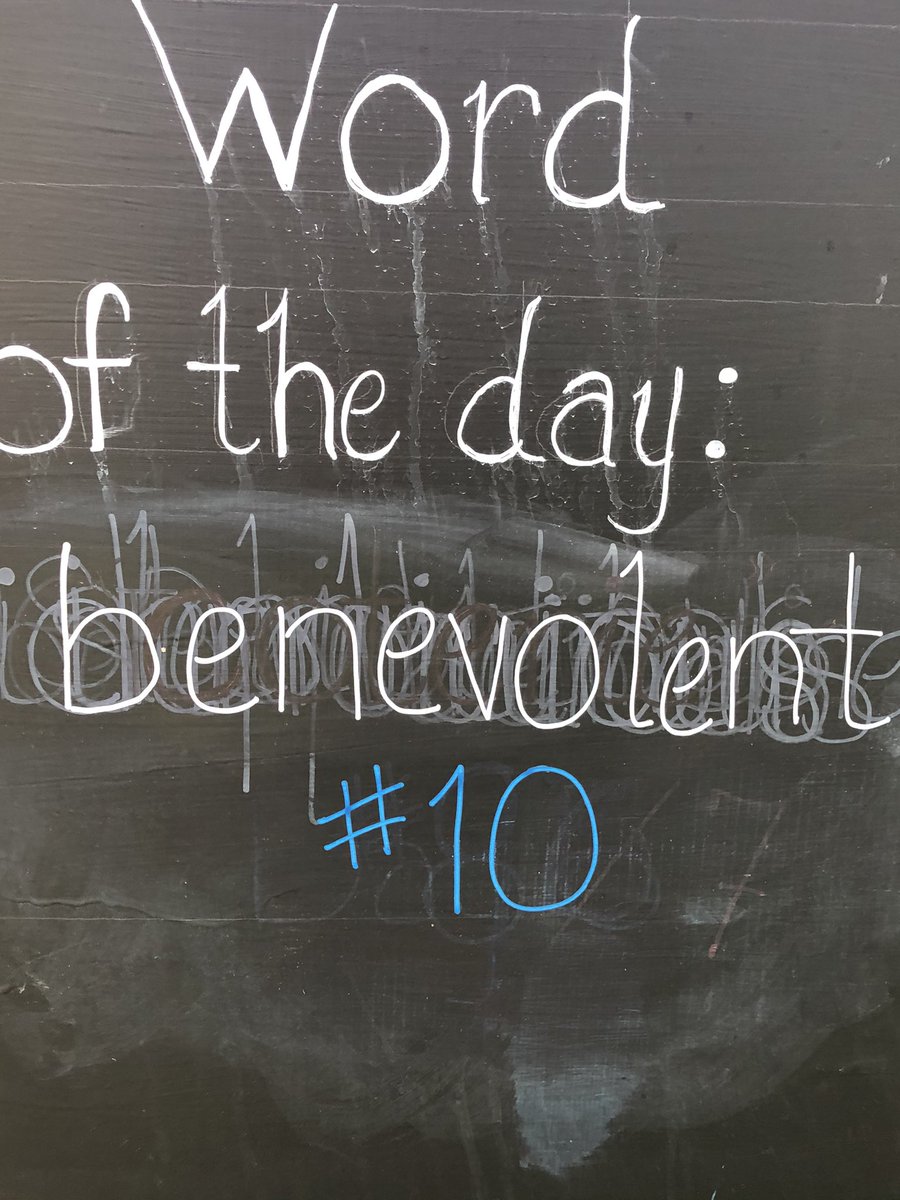 Word
of the day:
benevolent
#10